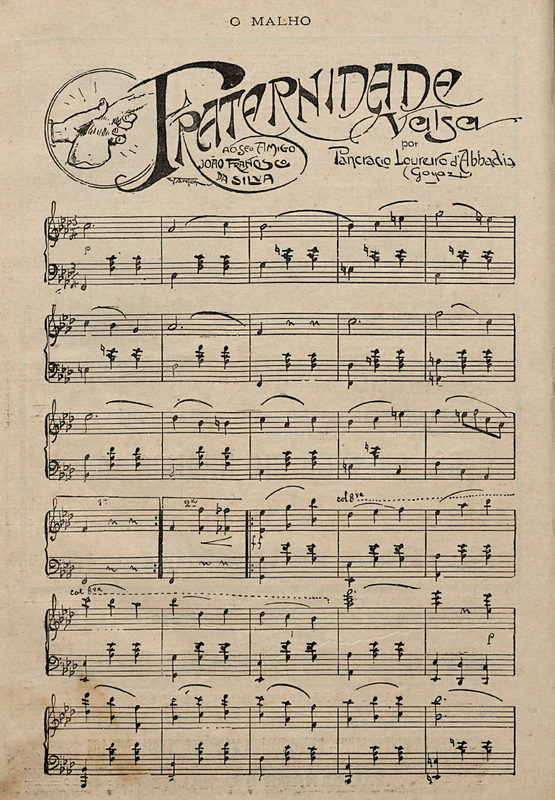 O MALHO
FRATERNIDADE
Valsa
AO SEO AMIGO
JOÃO FRANCISCO
DA SILVA
por
Pancracio Loureiro d'Abbadia
(Goyaz)
p
1ª
2ª
ff
col 8va
col 8va
p